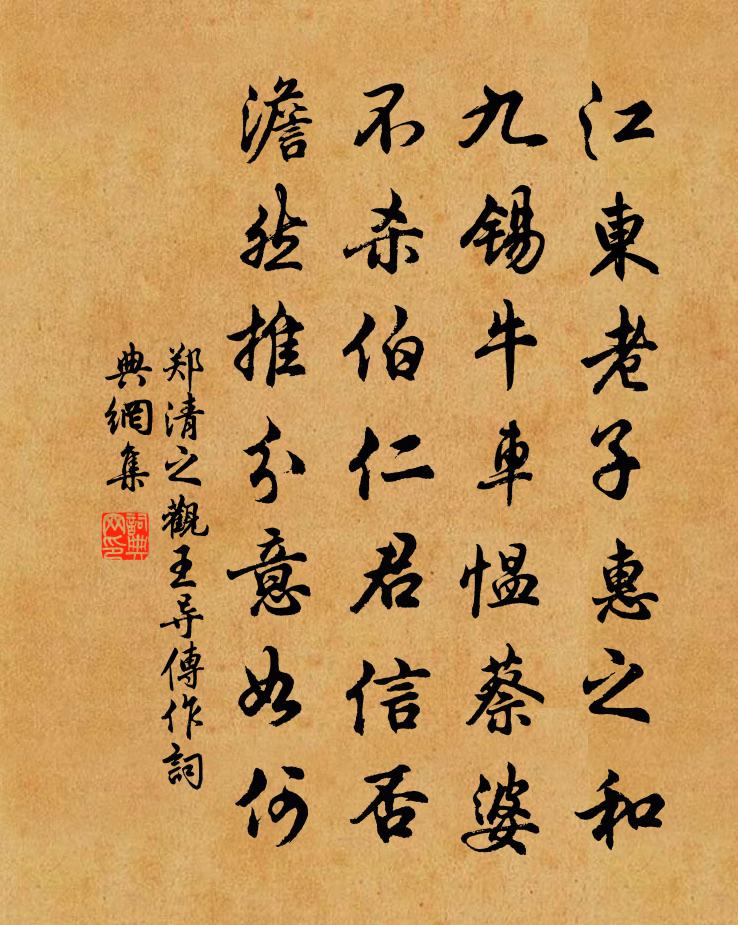 江東老子惠之和
九锡牛車愠蔡婆
不杀伯仁君信否
澹然推分意如何
郑清之觀王导傳作詞
典網集
詞典
网印